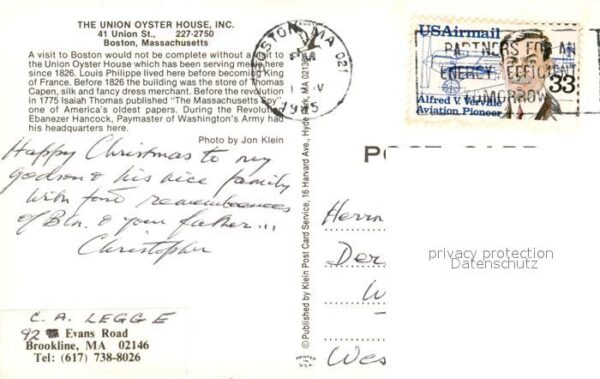 THE UNION OYSTER HOUSE, INC.
41 Union St., 227-2750
Boston, Massachusetts
A visit to Boston would not be complete without a visit to
the Union Oyster House which has been serving meals here
since 1826. Louis Philippe lived here before becoming King
of France. Before 1826 the building was the store of Thomas
Capen, silk and fancy dress merchant. Before the revolution
in 1775 Isaiah Thomas published "The Massachusetts Spy"
one of America's oldest papers. During the Revolution
Ebenezer Hancock, Paymaster of Washington's Army had
his headquarters here.
Photo by Jon Klein
Happy Christmas to my
godson & his nice family
with fond remembrances
of Bln. & your father...
Christopher
C. A. LEGGE
92 Evans Road
Brookline, MA 02146
Tel: (617) 738-8026
© Published by Klein Post Card Service, 16 Harvard Ave., Hyde Park, MA 02136
PRINTED IN U.S.A.
BOSTON, MA 021
PM
1985
USAirmail
PARTNERS FOR AN
ENERGY EFFICIENT
TOMORROW
33
Alfred V. Verville
Aviation Pioneer
POST CARD
Herrn
Der
W
Wes
privacy protection
Datenschutz